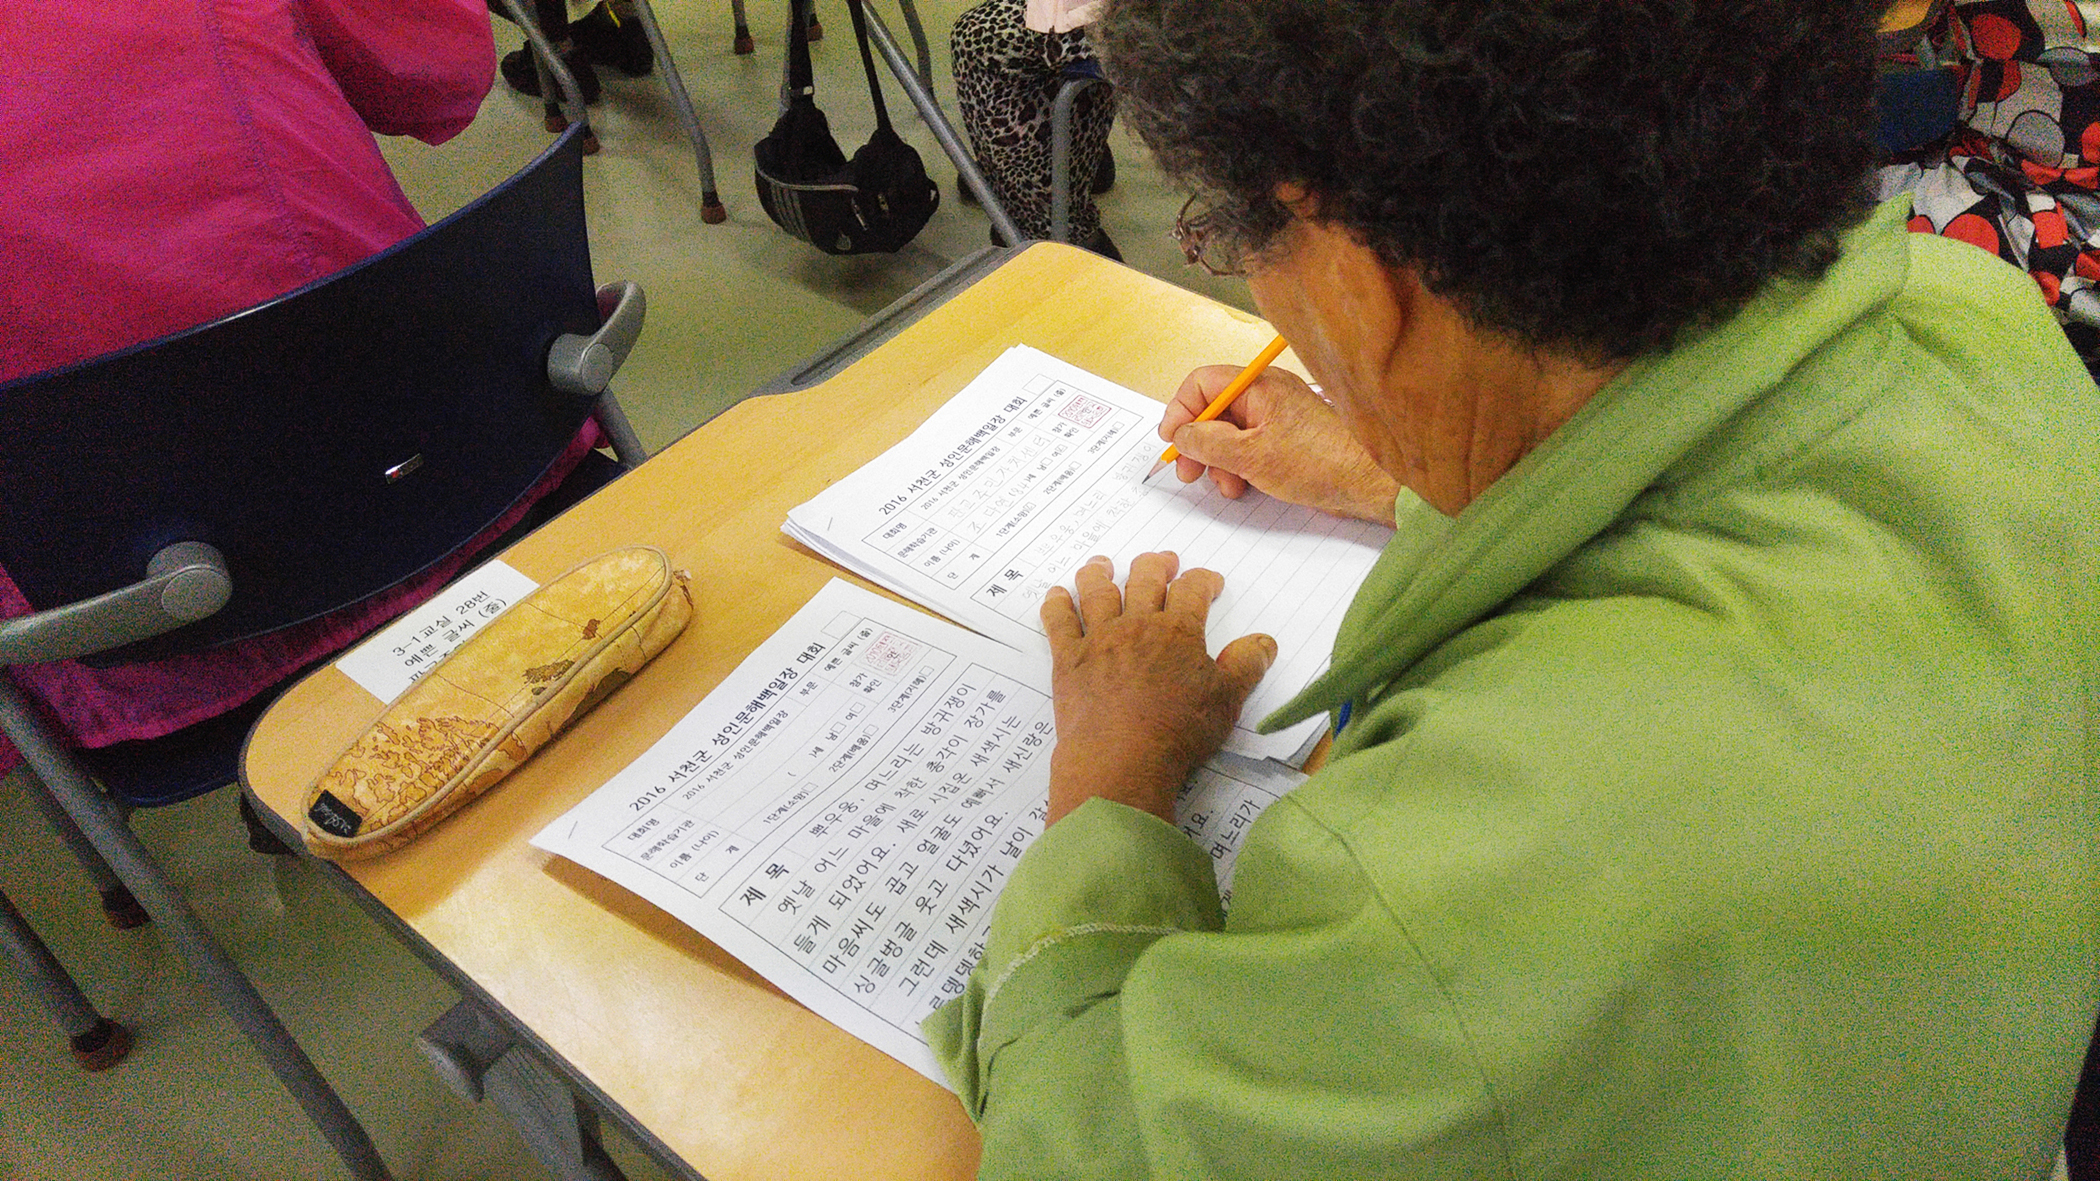 2016 서천군 성인문해백일장 대회
대회명 2016 서천군 성인문해백일장 부문 예쁜 글씨 (줄)
문해학습기관 판교주민자치센터 참가 확인
이름 (나이) )세 남 여
단 계 1단계(소망) 2단계(배움) 3단계(지혜)
제 목 뿌우웅, 며느리 방귀쟁이
옛날 어느 마을에 착한
3-1교실 28번
예쁜 글씨 (줄)
2016 서천군 성인문해백일장 대회
대회명 2016 서천군 성인문해백일장 부문 예쁜 글씨 (줄)
문해학습기관 참가 확인
이름 (나이) ( )세 남 여
단 계 1단계(소망) 2단계(배움) 3단계(지혜)
제 목 뿌우웅, 며느리는 방귀쟁이
옛날 어느 마을에 착한 총각이 장가를
들게 되었어요. 새로 시집온 새색시는
마음씨도 곱고 얼굴도 예뻐서 새신랑은
싱글벙글 웃고 다녔어요.
그런데 새색시가 날이
며느리가